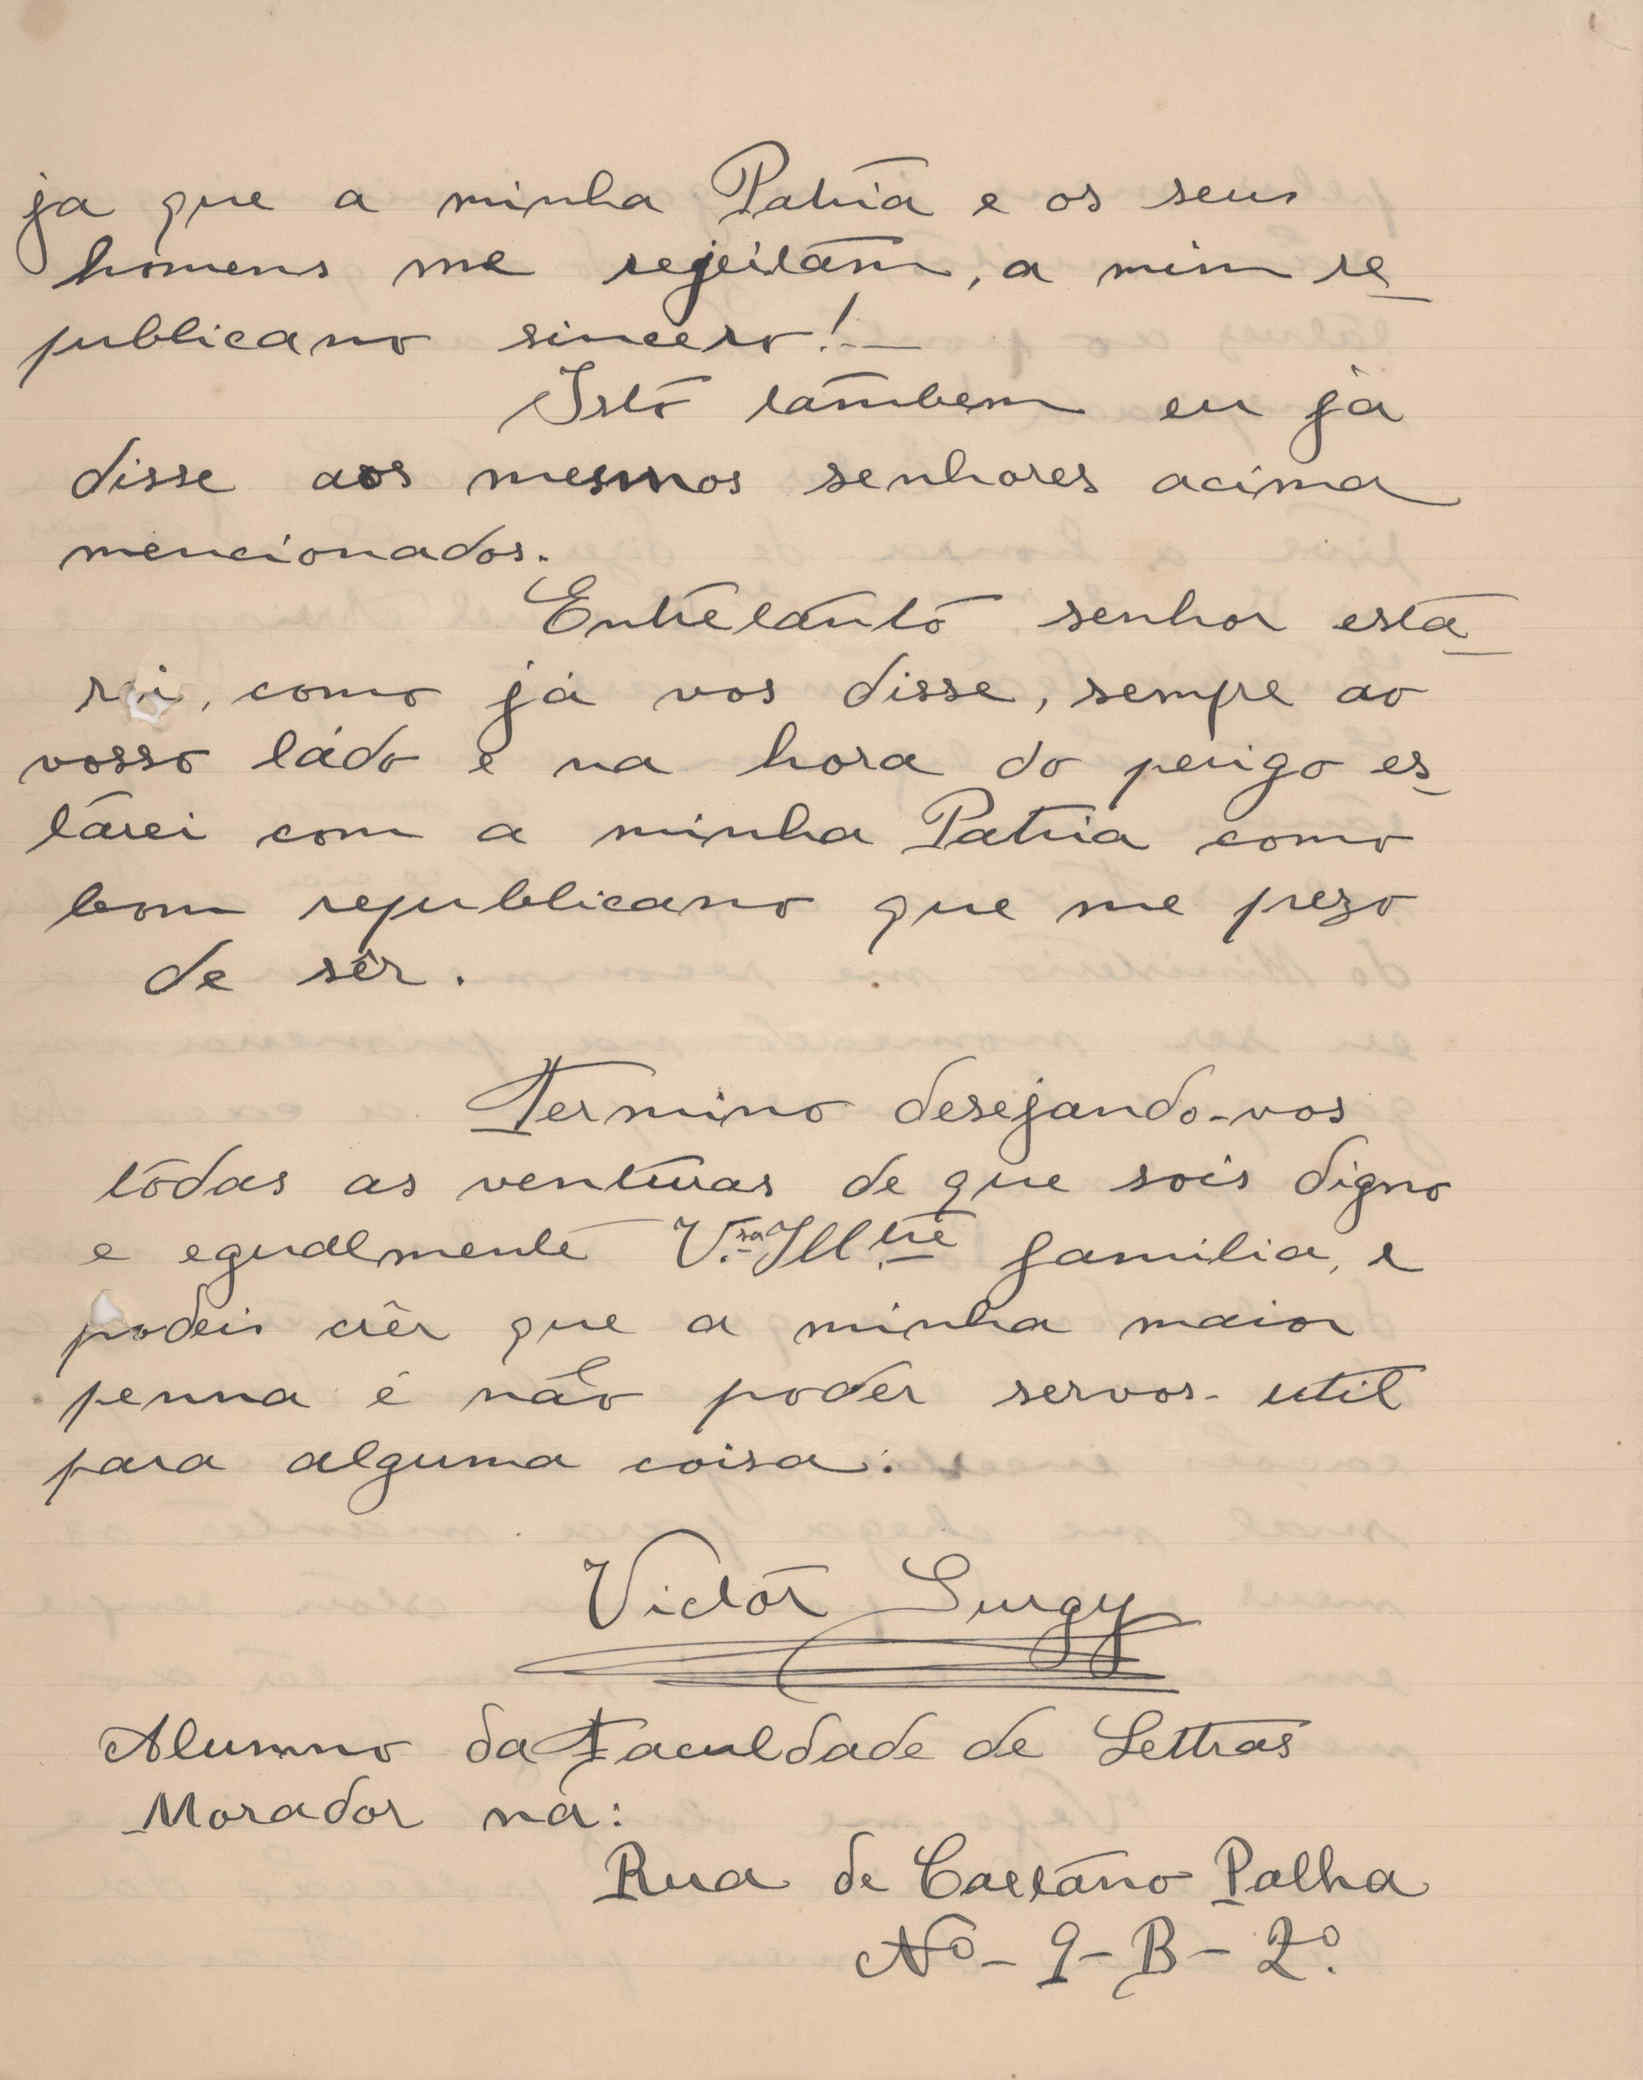 ja que a minha Patria e os seus
homens me regeitam, a mim re-
publicano sincero!—
Isto tambem eu já
disse aos mesmos senhores acima
mencionados.
Entretanto senhor esta-
rei, como já vos disse, sempre ao
vosso ládo e na hora do perigo es-
tarei com a minha Patria como
bom republicano que me prezo
de sêr.
Termino desejando-vos
todas as venturas de que sois digno
e egualmente V.ra Ill.tre familia, e
podeis crêr que a minha maior
penna é não poder servos- util
para alguma coisa.
Victor Surgy
Alumno da Faculdade de Lettras
Morador na:
Rua de Caetano Palha
Nº - 9 - B - 2º.